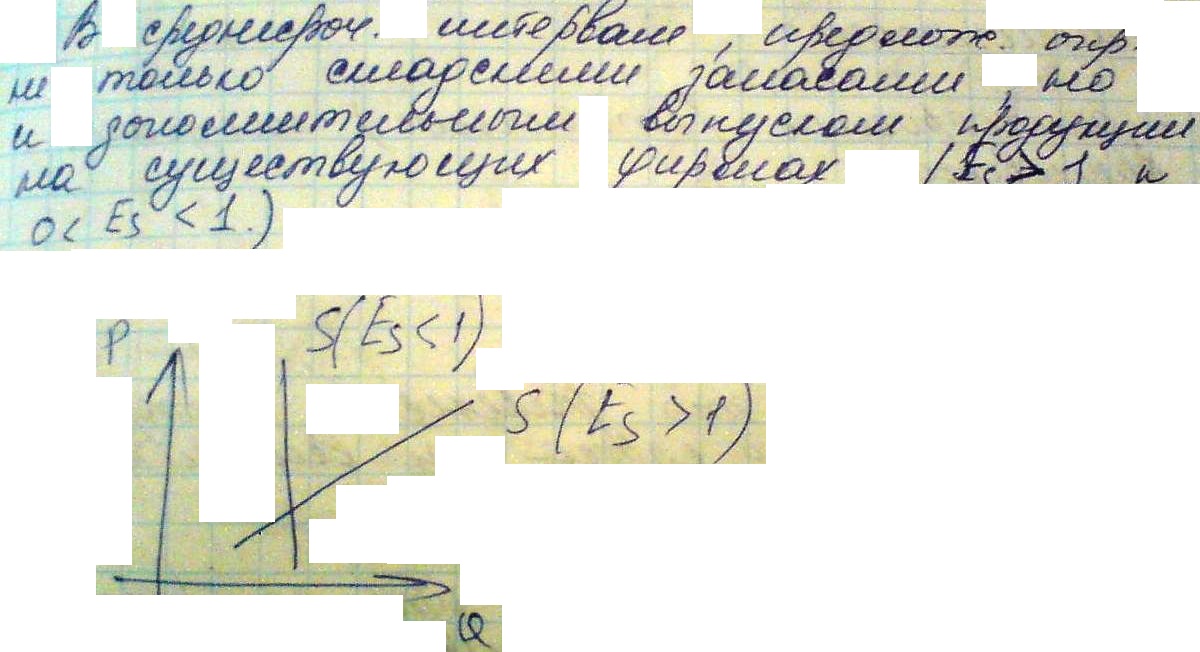 В среднесроч. интервале, предлож. опр.
не только складскими запасами, но
и дополнительным выпуском продукции
на существующих фирмах (Es > 1 и
0 < Es < 1.)
P
S(Es < 1)
S(Es > 1)
Q